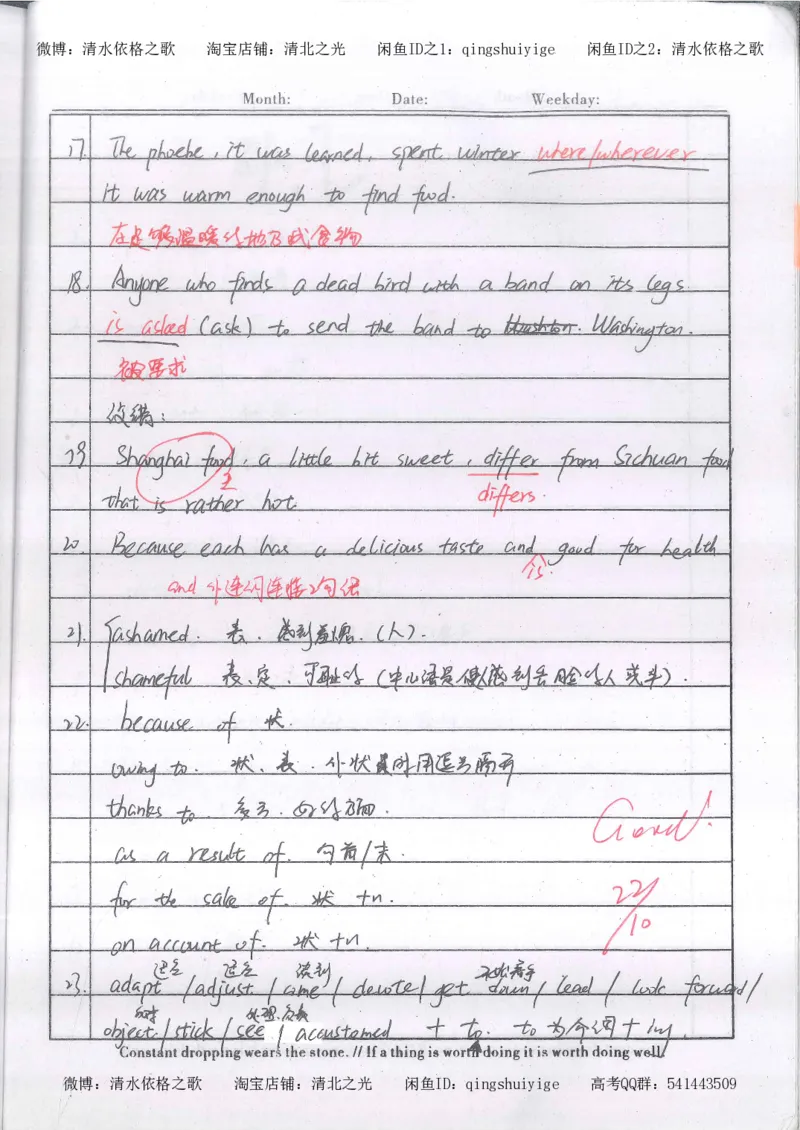 微博：清水依格之歌 淘宝店铺：清北之光 闲鱼ID之1：qingshuiyige 闲鱼ID之2：清水依格之歌
Month: Date: Weekday:
17. The phoebe, it was learned, spent winter where/wherever
it was warm enough to find food.
在足够温暖的地方找食物
18. Anyone who finds a dead bird with a band on its legs
is asked (ask) to send the band to Washington.
被要求
改错：
19 Shanghai food, a little bit sweet, differ from Sichuan food
主
that is rather hot
differs.
20. Because each has a delicious taste and good for health
is.
and 并连词连接2句话
21. ashamed. 表. 感到羞愧. (人).
shameful 表、定、可耻的 (中心语是使人感到丢脸的人或事).
22. because of 状.
owing to. 状、表. 作状语时用逗号隔开
thanks to. 多亏. 好的方面.
as a result of. 句首/末.
for the sake of. 状 +n.
on account of. 状 +n.
适应 适应 谈到
23. adapt /adjust / come / devote / get down / lead / look forward/
反对 处理
object / stick / see / accustomed + to. to 为介词 + ing.
Constant dropping wears the stone. // If a thing is worth doing it is worth doing well.
Good!
22/10
微博：清水依格之歌 淘宝店铺：清北之光 闲鱼ID：qingshuiyige 高考QQ群：541443509